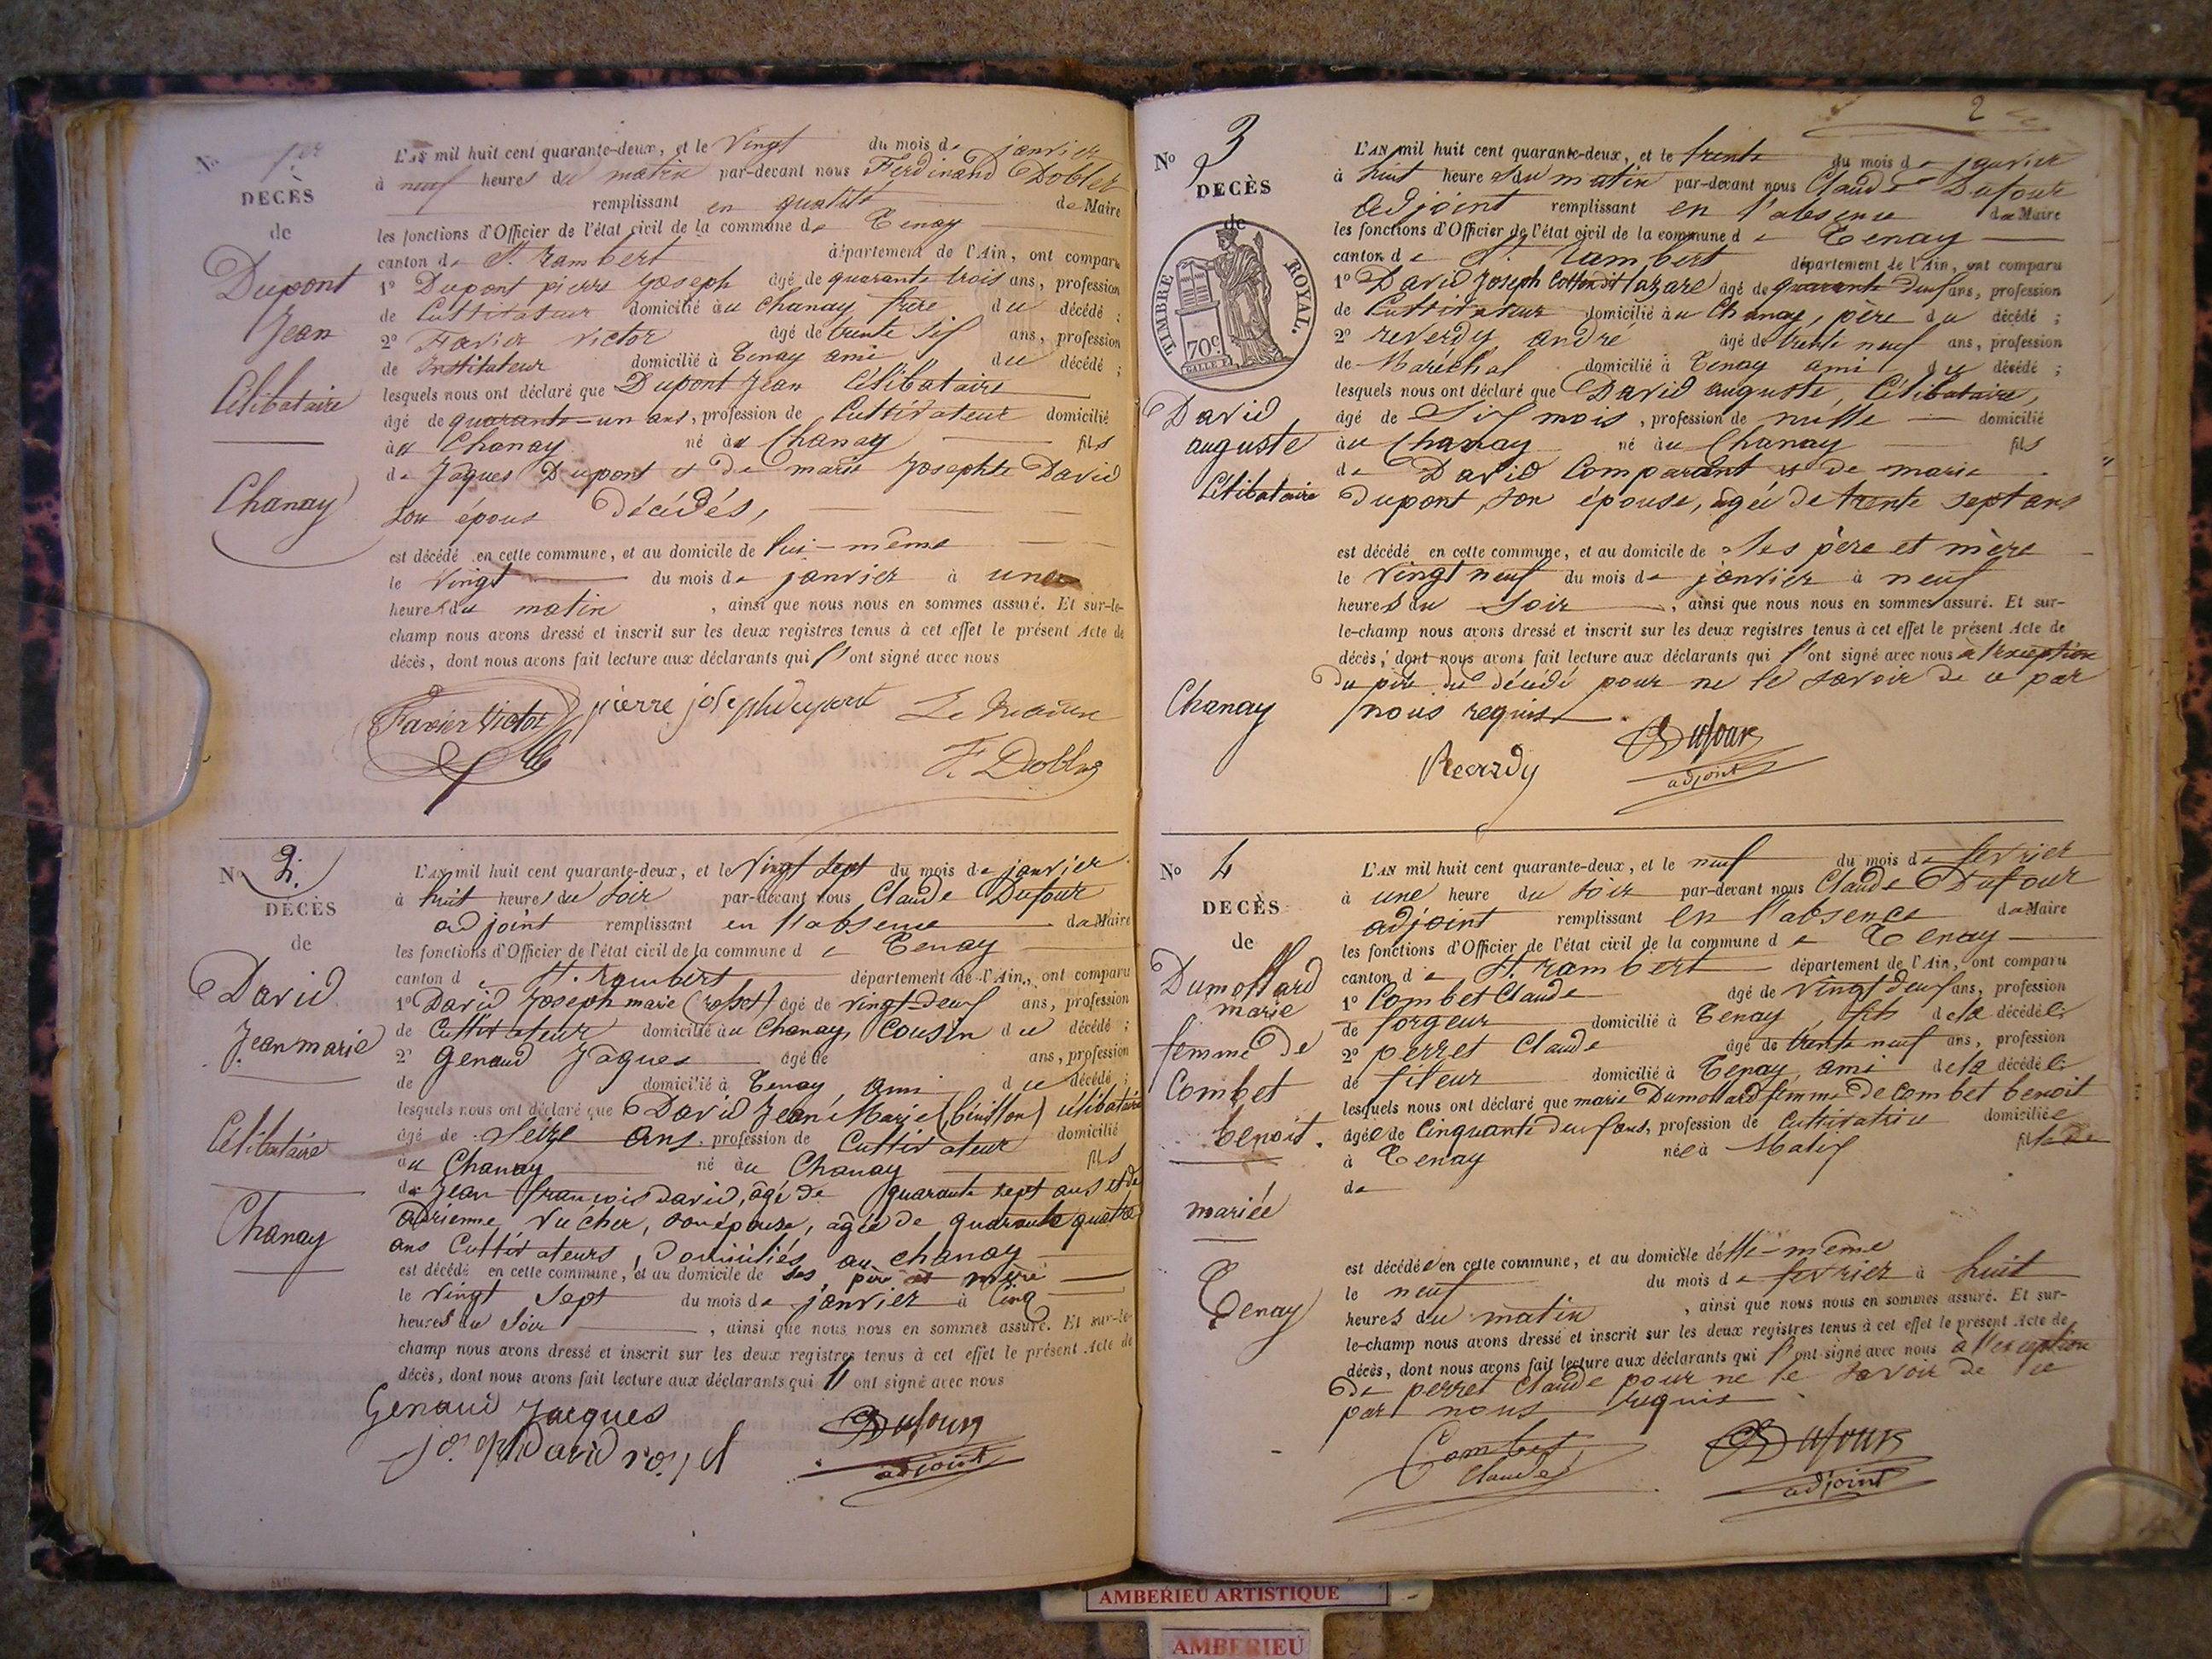 No 1.er
DECÈS
de
Dupont
Jean
Célibataire
Chanay
L'AN mil huit cent quarante-deux, et le vingt du mois de janvier
à neuf heures du matin par-devant nous Ferdinand Dobler
remplissant en qualité de Maire
les fonctions d'Officier de l'état civil de la commune de Tenay
canton de St. Rambert département de l'Ain, ont comparu
1o Dupont pierre joseph âgé de quarante trois ans, profession
de Cultivateur domicilié au Chanay, frère du décédé ;
2o Favier Victor âgé de trente six ans, profession
de Instituteur domicilié à Tenay ami du décédé ;
lesquels nous ont déclaré que Dupont Jean Célibataire
âgé de quarante-un ans, profession de Cultivateur domicilié
au Chanay né au Chanay fils
de Jâques Dupont et de marie Josephte David
son épous décédés,
est décédé en cette commune, et au domicile de lui-même
le vingt du mois de janvier à une
heures du matin, ainsi que nous nous en sommes assuré. Et sur-le-
champ nous avons dressé et inscrit sur les deux registres tenus à cet effet le présent Acte de
décès, dont nous avons fait lecture aux déclarants qui l'ont signé avec nous
Favier Victor pierre joseph dupont Le Maire
F. Dobler
No 2.
DÉCÈS
de
David
Jean marie
Célibataire
Chanay
L'AN mil huit cent quarante-deux, et le Vingt sept du mois de janvier
à huit heures du soir par-devant nous Claude Dufour
adjoint remplissant en l'absence du Maire
les fonctions d'Officier de l'état civil de la commune de Tenay
canton de St. Rambert département de l'Ain, ont comparu
1o David Joseph marie (rosset) âgé de vingt-deux ans, profession
de Cultivateur domicilié au Chanay, Cousin du décédé ;
2o Genaud Jâques âgé de ans, profession
de domicilié à Tenay, ami du décédé ;
lesquels nous ont déclaré que David Jean Marie célibataire
âgé de Seize ans, profession de Cultivateur domicilié
au Chanay né au Chanay fils
de Jean françois David, âgé de quarante sept ans et de
adrienne Vucher, son épouse, agée de quarante quatre
ans Cultivateurs, Domiciliés au chanay
est décédé en cette commune, et au domicile de ses père et mère
le vingt Sept du mois de janvier à Cinq
heures du soir, ainsi que nous nous en sommes assuré. Et sur-le-
champ nous avons dressé et inscrit sur les deux registres tenus à cet effet le présent Acte de
décès, dont nous avons fait lecture aux déclarants qui l'ont signé avec nous
Genaud Jacques Dufour
joseph david roset adjoint
2
No 3
DECÈS
de
TIMBRE ROYAL.
70c
David
auguste
Célibataire
Chanay
L'AN mil huit cent quarante-deux, et le trente du mois de janvier
à huit heures du matin par-devant nous Claude Dufour
adjoint remplissant en l'absence du Maire
les fonctions d'Officier de l'état civil de la commune de Tenay
canton de St. Rambert département de l'Ain, ont comparu
1o David Joseph dit lazare âgé de quarante deux ans, profession
de Cultivateur domicilié au Chanay, père du décédé ;
2o reverdy andré âgé de trente neuf ans, profession
de Maréchal domicilié à Tenay ami du décédé ;
lesquels nous ont déclaré que David auguste, Célibataire,
âgé de Six mois, profession de nulle domicilié
au Chanay né au Chanay fils
de David Comparant et de marie
dupont, son épouse, agée de trente sept ans
est décédé en cette commune, et au domicile de ses père et mère
le vingt neuf du mois de janvier à neuf
heures du soir, ainsi que nous nous en sommes assuré. Et sur-
le-champ nous avons dressé et inscrit sur les deux registres tenus à cet effet le présent Acte de
décès, dont nous avons fait lecture aux déclarants qui l'ont signé avec nous à l'exception
du père du décédé pour ne le savoir de ce par
nous requis
Reverdy Dufour
adjoint
No 4
DECÈS
de
Dumollard
marie
femme de
Combet
benoit.
mariée
Tenay
L'AN mil huit cent quarante-deux, et le neuf du mois de fevrier
à une heure du soir par-devant nous Claude Dufour
adjoint remplissant en l'absence du Maire
les fonctions d'Officier de l'état civil de la commune de Tenay
canton de St. rambert département de l'Ain, ont comparu
1o Combet Claude âgé de vingt deux ans, profession
de forgeur domicilié à Tenay, fils de la décédée ;
2o perret Claude âgé de trente neuf ans, profession
de fileur domicilié à Tenay, ami de la décédée ;
lesquels nous ont déclaré que marie Dumollard femme de combet benoit
âgée de Cinquante deux ans, profession de Cultivatrice domiciliée
à Tenay née à Matix fille de
de
est décédée en cette commune, et au domicile d'elle-même
le neuf du mois de fevrier à huit
heures du matin, ainsi que nous nous en sommes assuré. Et sur-
le-champ nous avons dressé et inscrit sur les deux registres tenus à cet effet le présent Acte de
décès, dont nous avons fait lecture aux déclarants qui l'ont signé avec nous à l'exception
De perret Claude pour ne le savoir de ce
par nous requis
Combet Dufour
Claude adjoint
AMBERIEU ARTISTIQUE
AMBERIEU